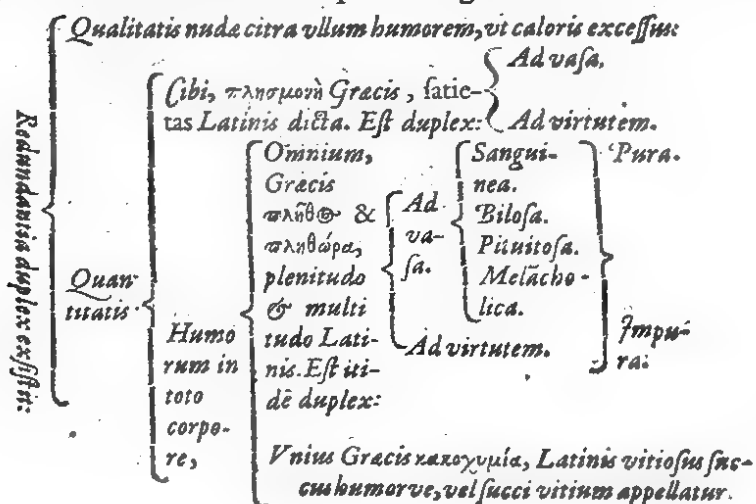 Redundantia duplex exsistit:
Qualitatis nudæ citra vllum humorem, vt caloris excessus:
Quan-
titatis
Cibi, πλησμονὴ Græcis, satie-
tas Latinis dicta. Est duplex:
Ad vasa.
Ad virtutem.
Humo
rum in
toto
corpo-
re,
Omnium,
Græcis
πλῆθος &
πληθώρα,
plenitudo
& multi
tudo Lati-
nis. Est iti-
dē duplex:
Ad
va-
sa.
Sangui-
nea.
Biliosa.
Pituitosa.
Melācho-
lica.
Pura.
Impu-
ra:
Ad virtutem.
Vnius Græcis κακοχυμία, Latinis vitiosus suc-
cus humorve, vel succi vitium appellatur.